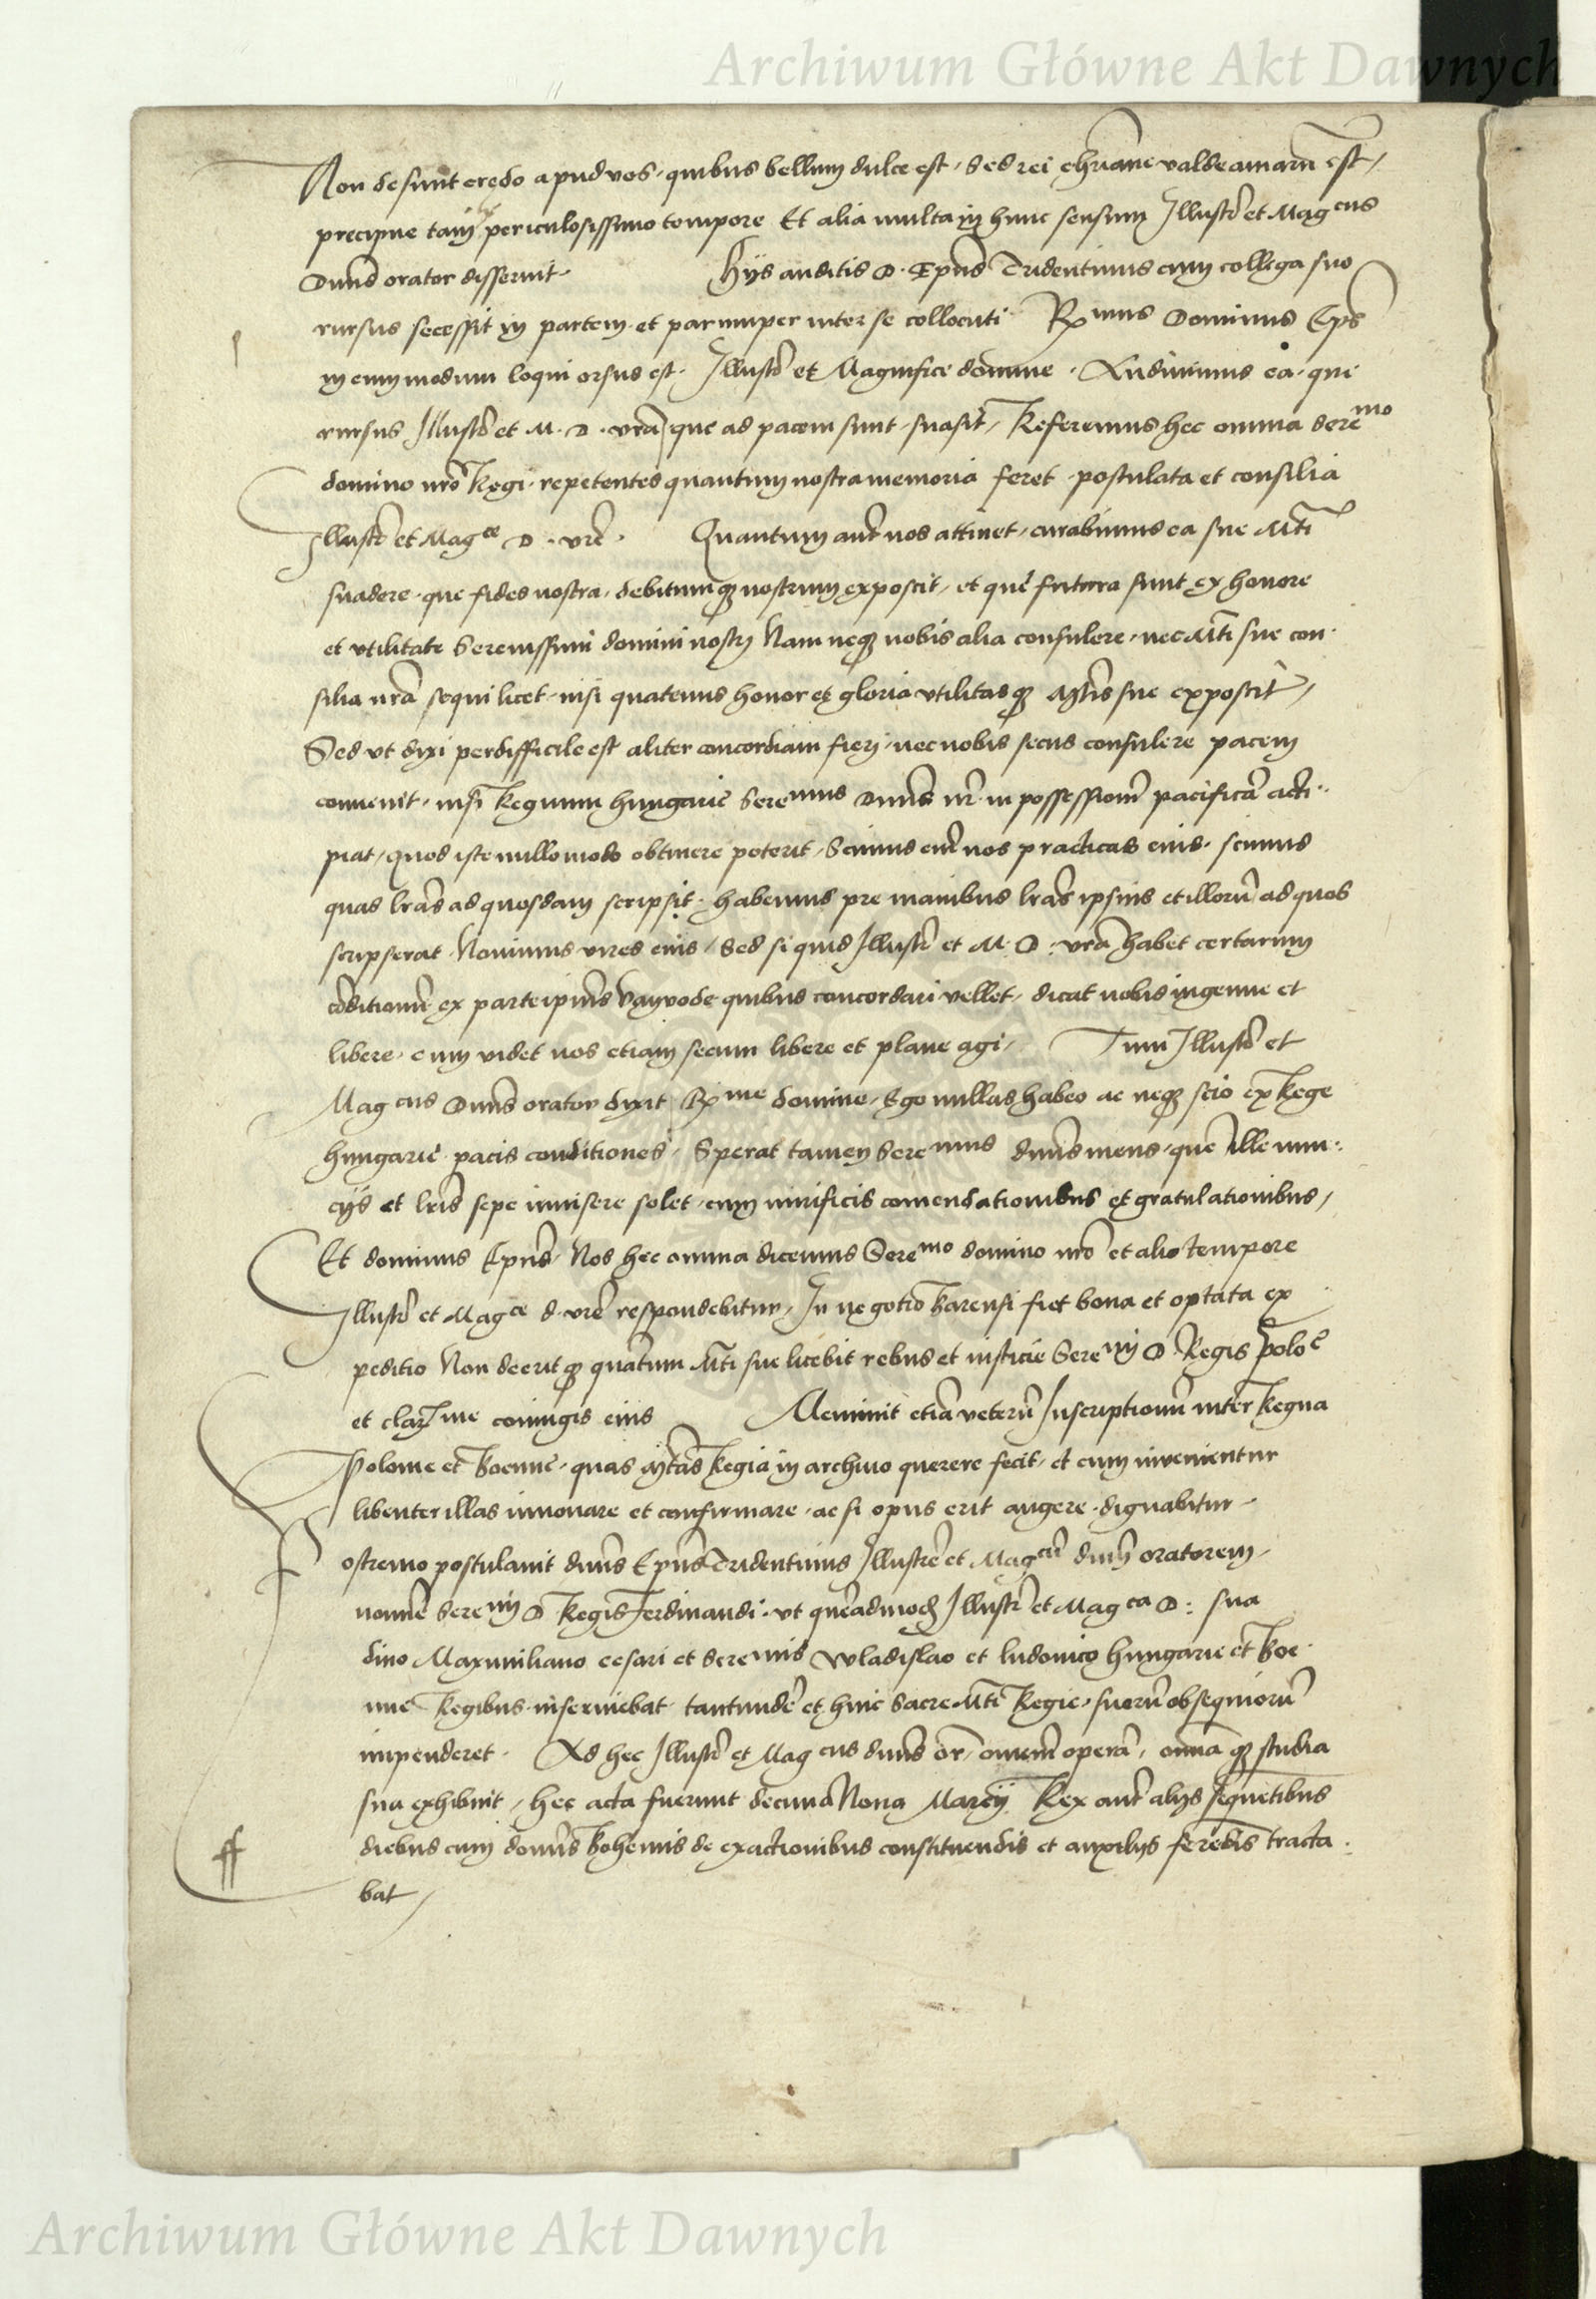 Archiwum Główne Akt Dawnych
Non desunt credo apud vos, quibus bellum dulce est, sed rei chriane valde amarum est,
precipue tam periculosissimo tempore Et alia multa in hunc sensum Illustr et Magcus
Dnus orator disseruit. Hijs auditis D. Epus Tridentinus cum collega suo
rursus secessit in partem et parumper inter se collocuti Rmus Dominus Eps
in eum modum loqui orsus est. Illustr et Magnifice domine. Audivimus ea, que
rursus Illustr et M. D. vra que ad pacem sunt, suasit, Referemus hec omnia Seremo
domino nro Regi, repetentes quantum nostra memoria feret, postulata et consilia
Illustr et Magce D. vre. Quantum aut nos attinet, curabimus ea sue Mti
suadere, que fides nostra, debitumq nostrum exposcit, et que futura sunt ex honore
et utilitate Serenissimi domini nostri Nam neq nobis alia consulere, nec Mti sue con
silia nra sequi licet, nisi quatenus honor et gloria utilitasq Mtis sue exposcit,
Sed ut dixi perdifficile est aliter concordiam fieri, nec nobis secus consulere pacem
convenit, nisi Regnum Hungarie Seremus Dnus nr in possessionem pacificam acci
piat, quod iste nullo modo obtinere poterit, Scimus em nos practicas eius, scimus
quas lras ad quosdam scripsit, habemus pre manibus lras ipsius et illorum ad quos
scripserat Novimus vires eius, Sed si quid Illustr et M. D. vra habet certarum
conditionum ex parte ipius Vayvode quibus concordari vellet, dicat nobis ingenue et
libere, cum videt nos etiam secum libere et plane agi, Tum Illustr et
Magcus Dnus orator dixit Rme domine, Ego nullas habeo ac neq scio ex Rege
Hungarie pacis conditiones, Sperat tamen Seremus dnus meus, que ille nun
cijs et lris sepe invisere solet, cum mirificis comendationibus et gratulationibus,
Et dominus Epus, Nos hec omnia dicemus Seremo domino nro et alio tempore
Illustr et Magce d. vre respondebitur, In negotio Barensi fiet bona et optata ex
peditio Non deeritq quantum Mti sue licebit rebus et iusticie Seremi D. Regis Polo
et clarme coniugis eius Meminit etia veteru Inscriptionu inter Regna
Polonie et Boemie, quas Mtas Regia in archivo querere fecit, et cum invenientur
libenter illas innovare et confirmare, ac si opus erit augere, dignabitur
Postremo postulavit dnus Epus Tridentinus Illustre et Magcu dnum oratorem,
nomine Seremi D Regis Ferdinandi, ut queadmod Illustr et Magca D: sua
divo Maximiliano cesari et Seremis Wladislao et Ludovico Hungarie et Boe
mie Regibus inserviebat tantunde et huic Sacre Mti Regie, suoru obsequioru
impenderet. Ad hec Illustr et Magcus dnus or, omnem opera, omnia q studia
sua exhibuit, hec acta fuerunt decima Nona Marcij Rex aut alijs sequetibus
diebus cum domis Bohemis de exactionibus constituendis et auxilijs feredis tracta
bat
ff
Archiwum Główne Akt Dawnych